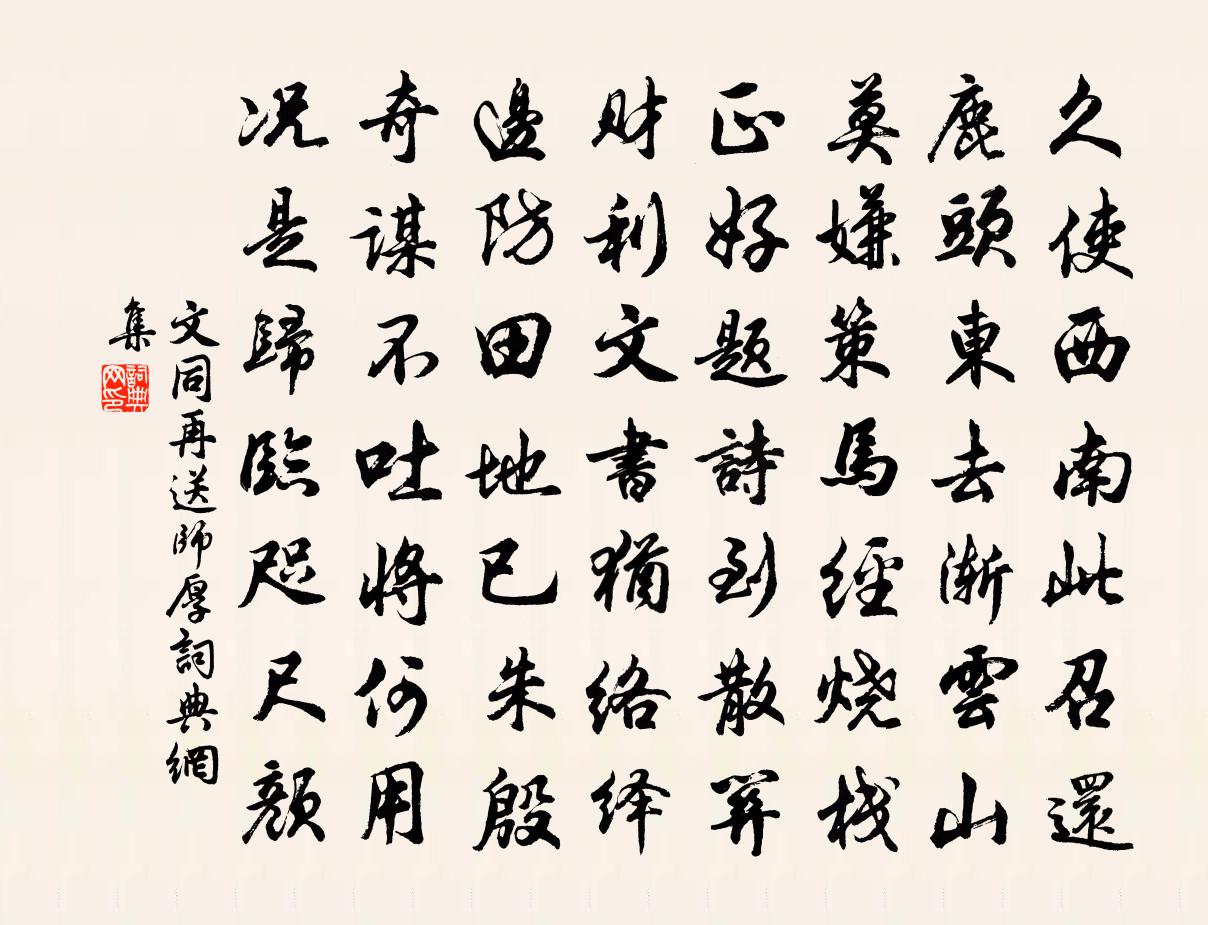 久使西南此召還
鹿頭東去漸雲山
莫嫌策馬經燒棧
正好題詩到散關
財利文書猶絡繹
邊防田地已朱殷
奇謀不吐將何用
況是歸臨咫尺顏
文同再送師厚詞典網
集
詞典网印